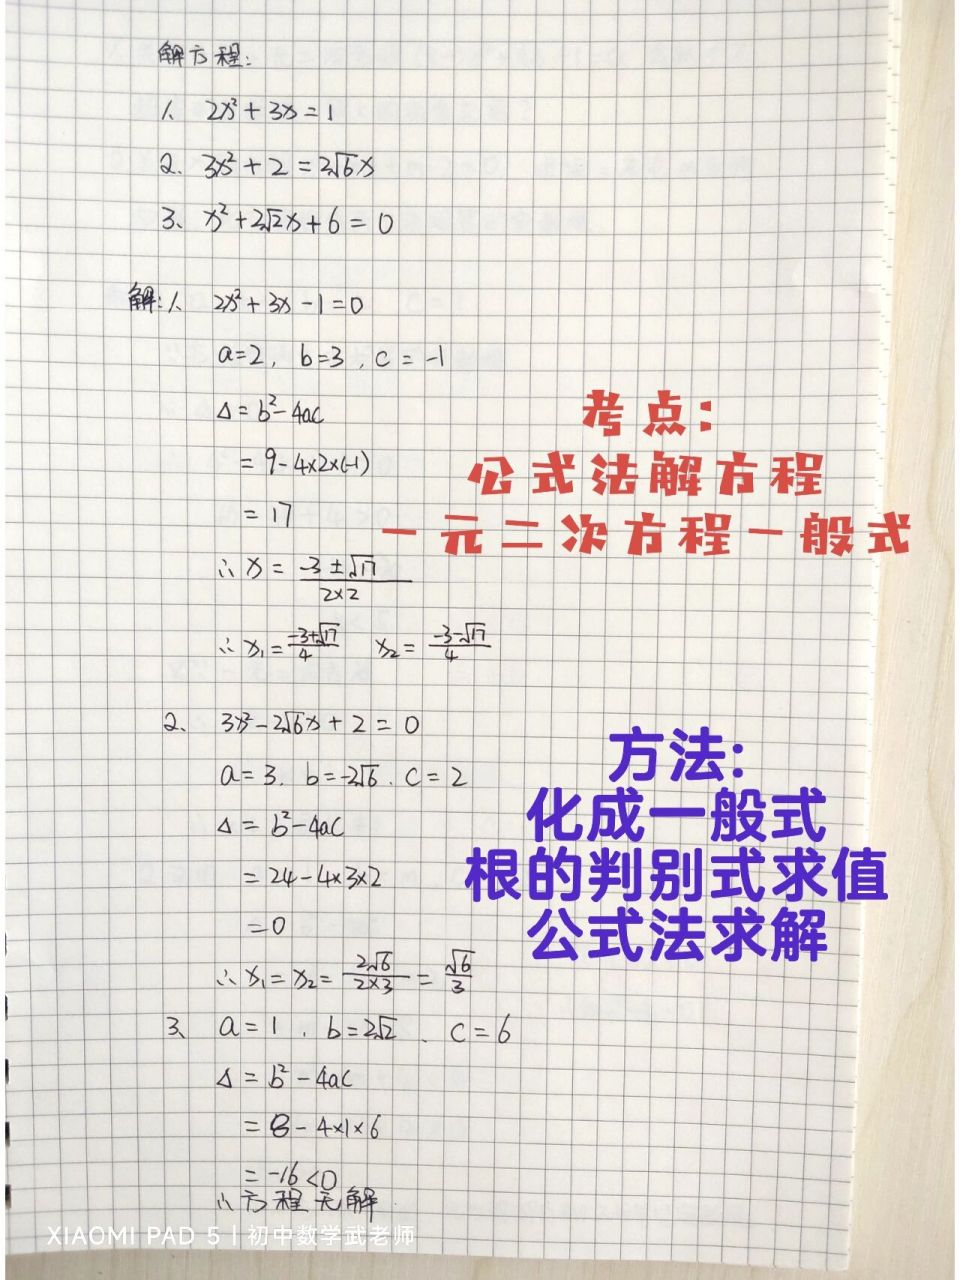 解方程:
1、 2x²+3x=1
2、 3x²+2=2√6x
3、 x²+2√2x+6=0
解:1、 2x²+3x-1=0
a=2, b=3, c=-1
Δ=b²-4ac
=9-4×2×(-1)
=17
∴x=(-3±√17)/(2×2)
∴x₁=(-3+√17)/4 x₂=(-3-√17)/4
考点:
公式法解方程
一元二次方程一般式
2、 3x²-2√6x+2=0
a=3、b=-2√6、c=2
Δ=b²-4ac
=24-4×3×2
=0
∴x₁=x₂=2√6/(2×3)=√6/3
方法:
化成一般式
根的判别式求值
公式法求解
3、 a=1、b=2√2、c=6
Δ=b²-4ac
=8-4×1×6
=-16<0
∴方程无解
XIAOMI PAD 5 | 初中数学武老师